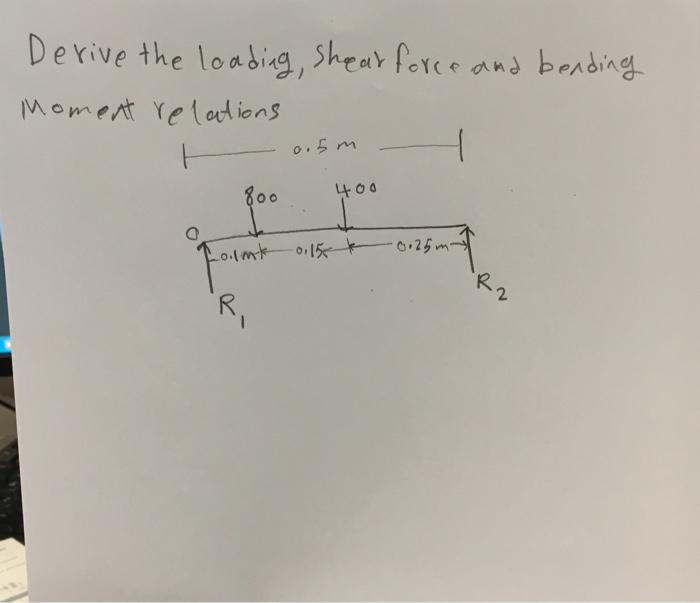 Derive the loading, Shear force and bending
Moment relations
0.5 m
800 400
O
0.1m 0.15 0.25m
R1
R2